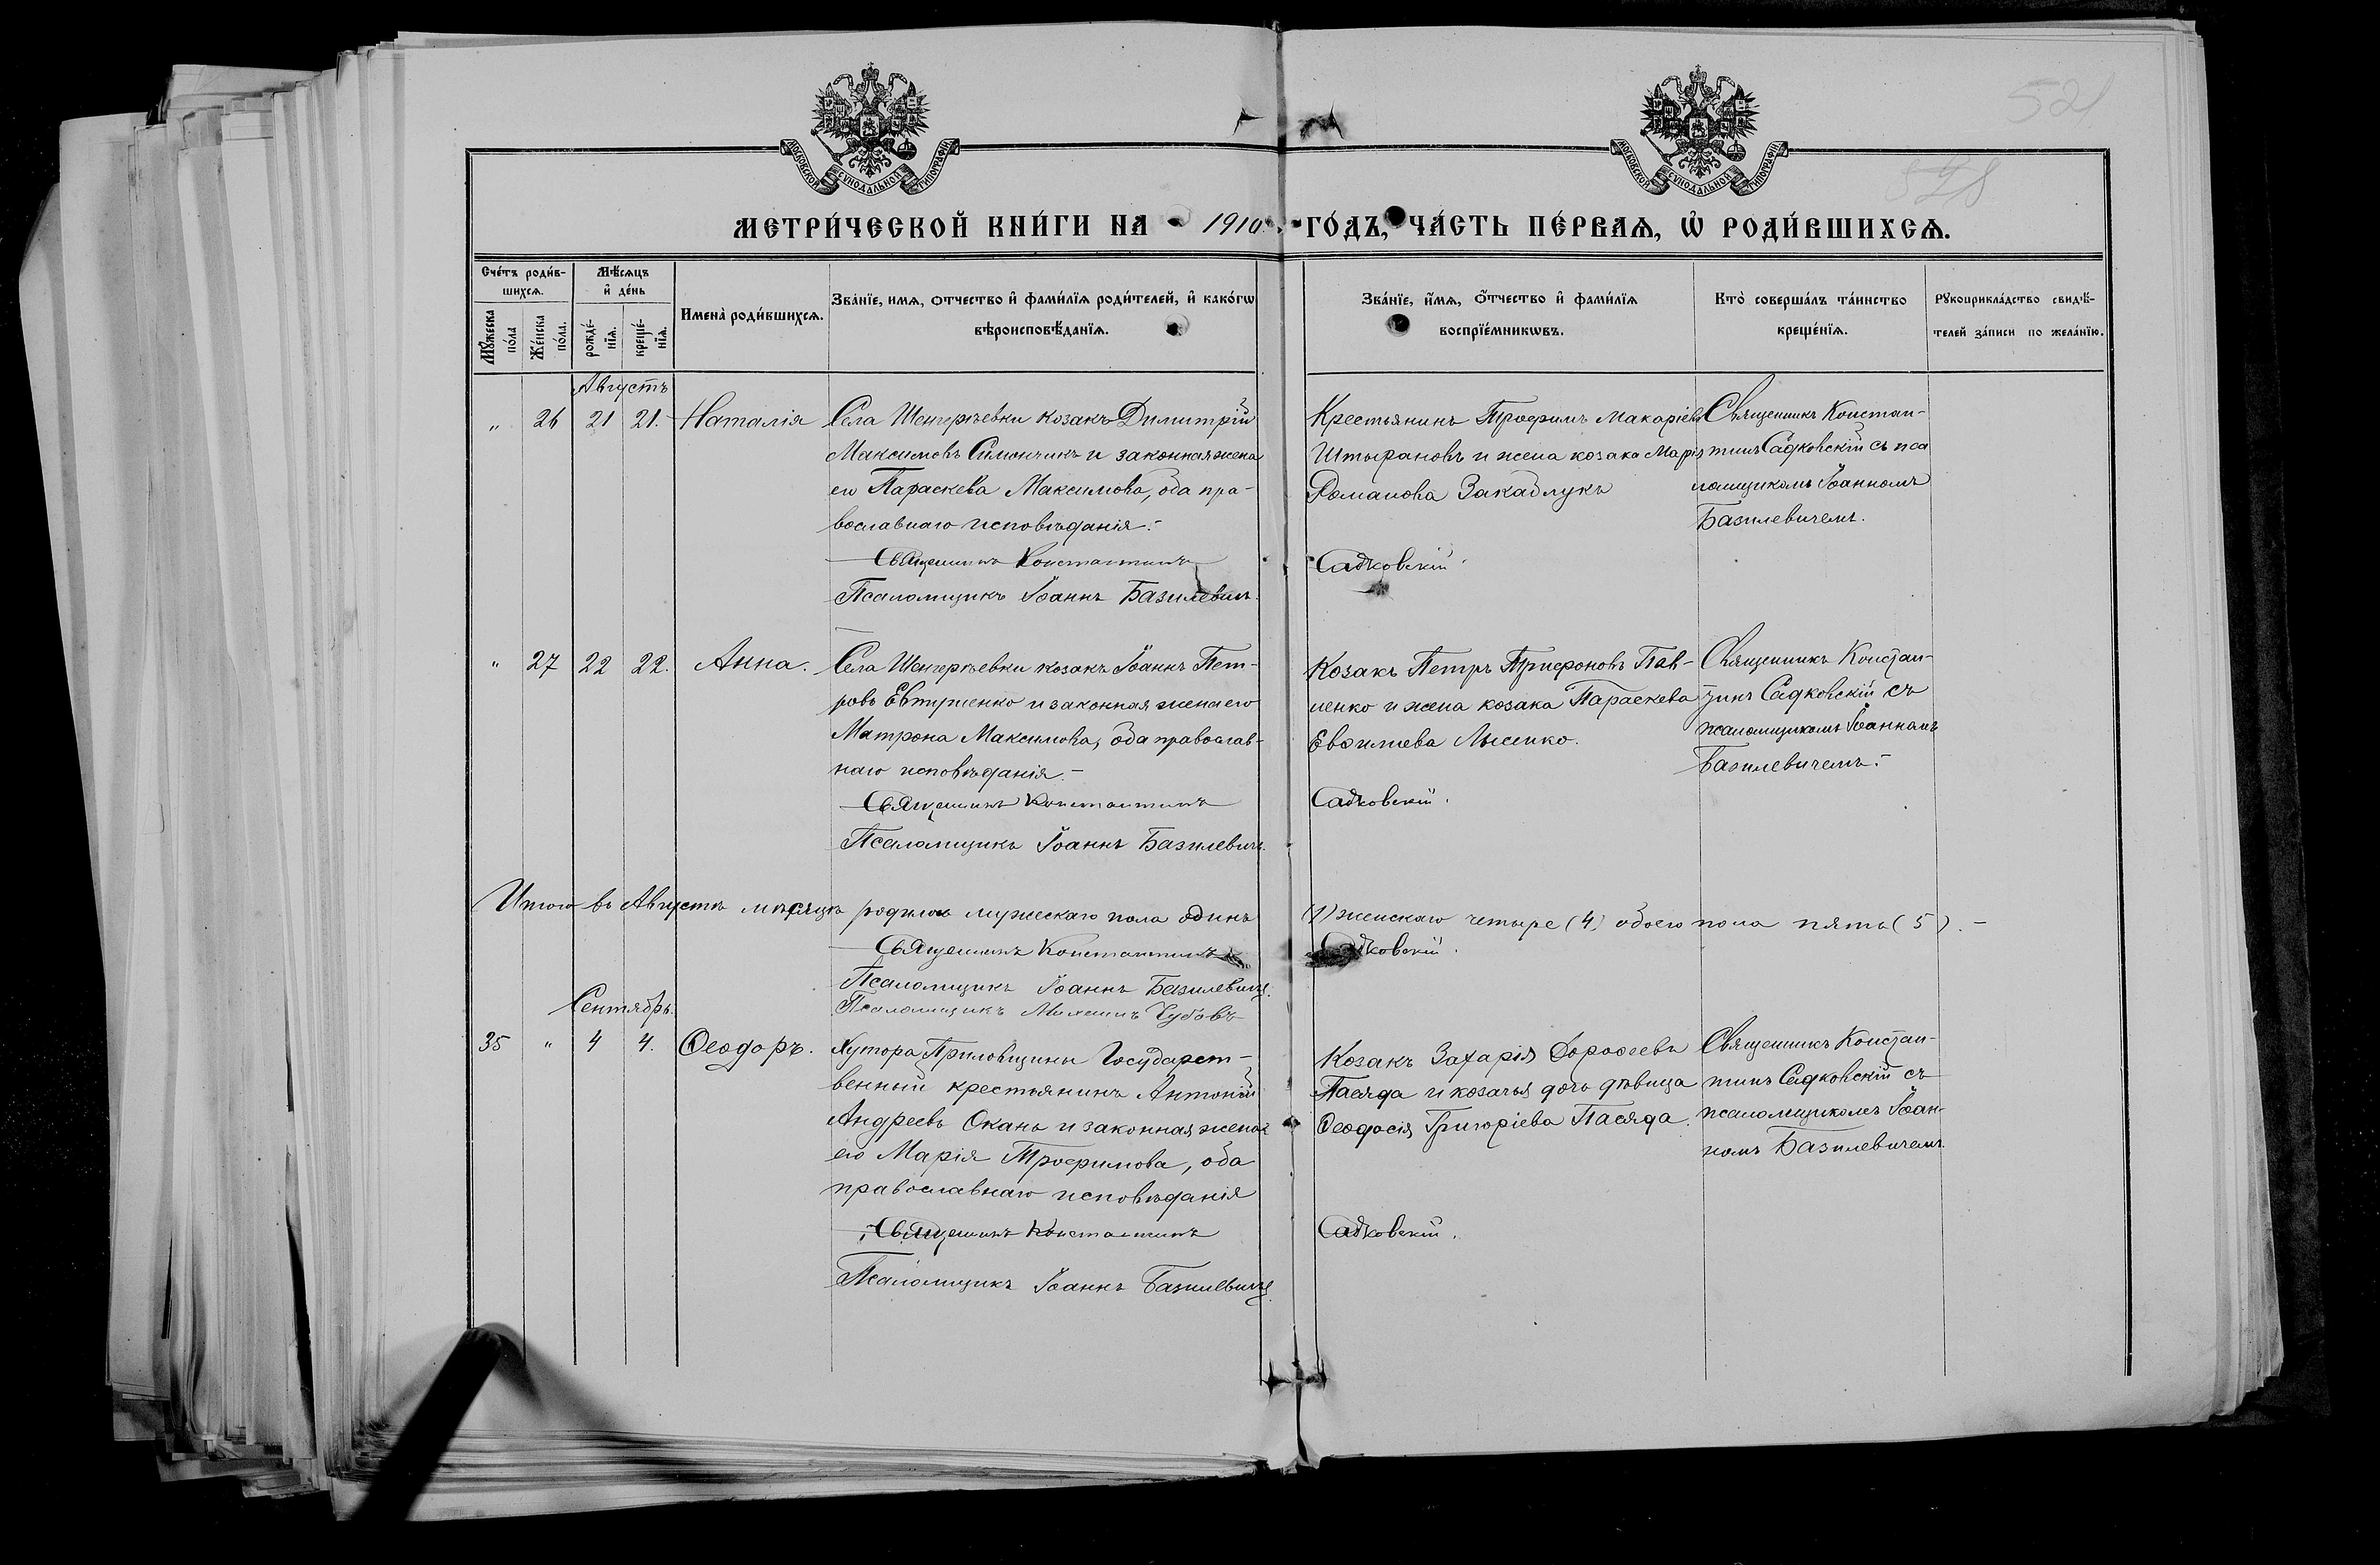 521
528
МОСКОВСКОЙ СѴНОДАЛЬНОЙ ТИПОГРАФІИ
МОСКОВСКОЙ СѴНОДАЛЬНОЙ ТИПОГРАФІИ
МЕТРИ́ЧЕСКОЙ КНИ́ГИ НА 1910 ГО́ДЪ, ЧА́СТЬ ПЕ́РВАѦ, Ѡ҆ РОДИ́ВШИХСѦ.
Сче́тъ роди́в-
шихсѧ.
Мꙋ́жеска по́ла
Же́нска по́ла.
Мѣ́сѧцъ
и҆ де́нь
рожде́-нїѧ.
креще́-нїѧ.
Имена̀ роди́вшихсѧ.
Зва́нїе, имѧ, отчество и҆ фами́лїѧ роди́телей, и҆ како́гѡ
вѣроисповѣ́данїѧ.
Зва́нїе, и҆́мѧ, о҆́тчество и҆ фами́лїѧ
воспрїе́мникѡвъ.
Кто̀ соверша́лъ та́инство
креще́нїѧ.
Рꙋкоприкла́дство свидѣ́-
телей за́писи по жела́нїю.
Августъ
„ 26 21 21. Наталія Села Шенгерѣевки козакъ Димитрій
Максимовъ Симончикъ и законная жена
его Параскева Максимова, оба пра-
вославнаго исповѣданія.-
Священникъ Константинъ
Псаломщикъ Іоаннъ Базилевичъ.
Крестьянинъ Трофимъ Макаріевъ
Штырановъ и жена козака Марія
Романова Закаблукъ
Садковскій.
Священникъ Констан-
тинъ Садковскій съ пса
ломщикомъ Іоанномъ
Базилевичемъ.
„ 27 22 22. Анна. Села Шенгерѣевки козакъ Іоаннъ Пет-
ровъ Евтушенко и законная жена его
Матрона Максимова, оба православ-
наго исповѣданія.-
Священникъ Константинъ
Псаломщикъ Іоаннъ Базилевичъ.
Козакъ Петръ Трифоновъ Пав-
ленко и жена козака Параскева
Лысенко.
Садковскій.
Священникъ Констан-
тинъ Садковскій съ
псаломщикомъ Іоанномъ
Базилевичемъ.-
Итого въ Августѣ мѣсяцѣ родилось мужескаго пола одинъ (1) женскаго четыре (4) обоего пола пять (5).-
Священникъ Константинъ Садковскій.
Псаломщикъ Іоаннъ Базилевичъ.
Псаломщикъ Чубовъ
Сентябрь.
35 „ 4 4. Ѳеодоръ. Хутора Приловщины Государст-
венный крестьянинъ Антоній
Андреевъ Окань и законная жена
его Марія Трофимова, оба
православнаго исповѣданія
Священникъ Константинъ
Псаломщикъ Іоаннъ Базилевичъ.
Козакъ Захарія Дороѳеевъ
Пасяда и козачья дочь дѣвица
Ѳеодосія Григоріева Пасяда.
Садковскій.
Священникъ Констан-
тинъ Садковскій съ
псаломщикомъ Іоан-
номъ Базилевичемъ.